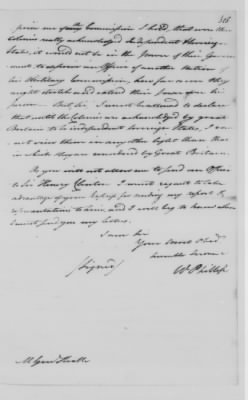 315
prive me of any Commission I hold, that were the
Colonies really acknowledged Independent Sovereign
States, it would not be in the Power of their Govern
ment to deprive an Officer of another Nation
his Military Commission, how far soever they
might stretch and extend their Power over his
person. But Sir I must be allowed to declare
that until the Colonies are acknowledged by great
Britain to be independent Sovereign States, I can
not view them in any other light than that
in which they are considered by Great Britain.
As you will not allow me to send an Officer
to Sir Henry Clinton I must request to take
advantage of your for sending my report &
representation to him, and I will beg to know when
I must send you my letters.
I am Sir
Your most Obed
humble Servant
(Signed) W Phillips
M Genl Heath